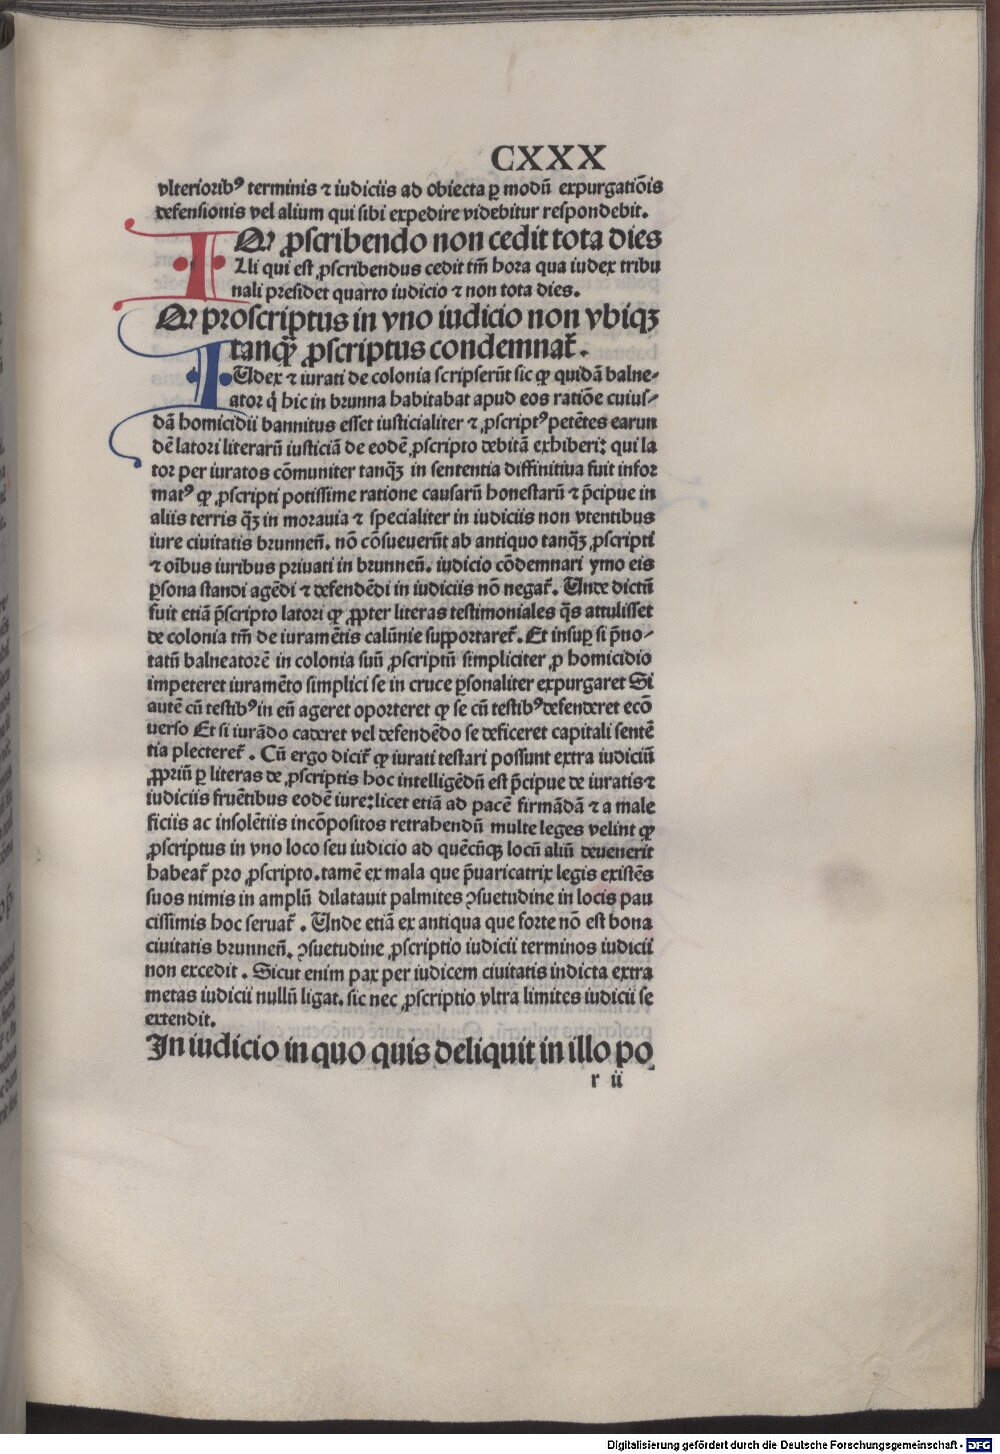 CXXX
vlteriorib⁹ terminis ⁊ iudiciis ad obiecta ꝑ modū expurgatiōis
defensionis vel alium qui sibi expedire videbitur respondebit.
Qꝫ ꝓscribendo non cedit tota dies
Illi qui est ꝓscribendus cedit tm̄ hora qua iudex tribu
nali presidet quarto iudicio ⁊ non tota dies.
Qꝫ proscriptus in vno iudicio non vbiqꝫ
tanqȝ̄ ꝓscriptus condemnat̄.
IUdex ⁊ iurati de colonia scripserūt sic qꝫ quidā balne-
ator q̇ hic in brunna habitabat apud eos ratiōe cuius-
dā homicidii bannitus esset iusticialiter ⁊ ꝓscript⁹ petētes earun
dē latori literarū iusticiā de eodē ꝓscripto debitā exhiberi: qui la
tor per iuratos cōmuniter tanqȝ̄ in sententia diffinitiua fuit infor
mat⁹ qꝫ ꝓscripti potissime ratione causarū honestarū ⁊ p̄cipue in
aliis terris qȝ̄ in morauia ⁊ specialiter in iudiciis non vtentibus
iure ciuitatis brunnen̄. nō cōsueuerūt ab antiquo tanqȝ̄ ꝓscripti
⁊ oībus iuribus priuati in brunnen̄. iudicio cōdemnari ymo eis
ꝑsona standi agēdi ⁊ defendēdi in iudiciis nō negat̄. Unde dictū
fuit etiā p̄scripto latori qꝫ ꝓpter literas testimoniales q̄s attulisset
de colonia tm̄ de iuramētis calūnie supportaret̄. Et insuꝑ si p̄no-
tatū balneatorē in colonia suū ꝓscriptū simpliciter ꝓ homicidio
impeteret iuramēto simplici se in cruce ꝑsonaliter expurgaret Si
autē cū testib⁹ in eū ageret oporteret qꝫ se cū testib⁹ defenderet ecō
uerso Et si iurādo caderet vel defendēdo se deficeret capitali sentē
tia plecteret̄. Cū ergo dicit̄ qꝫ iurati testari possunt extra iudiciū
ꝓpriū ꝑ literas de ꝓscriptis hoc intelligēdū est p̄cipue de iuratis ⁊
iudiciis fruētibus eodē iure: licet etiā ad pacē firmādā ⁊ a male
ficiis ac insolētiis incōpositos retrahendū multe leges velint qꝫ
ꝓscriptus in vno loco seu iudicio ad quēcūqꝫ locū aliū deuenerit
habeat̄ pro ꝓscripto. tamē ex mala que p̄uaricatrix legis existēs
suos nimis in amplū dilatauit palmites ꝯsuetudine in locis pau
cissimis hoc seruat̄. Unde etiā ex antiqua que forte nō est bona
ciuitatis brunnen̄. ꝯsuetudine ꝓscriptio iudicii terminos iudicii
non excedit. Sicut enim pax per iudicem ciuitatis indicta extra
metas iudicii nullū ligat. sic nec ꝓscriptio vltra limites iudicii se
extendit.
In iudicio in quo quis deliquit in illo po
r ii
Digitalisierung gefördert durch die Deutsche Forschungsgemeinschaft - DFG